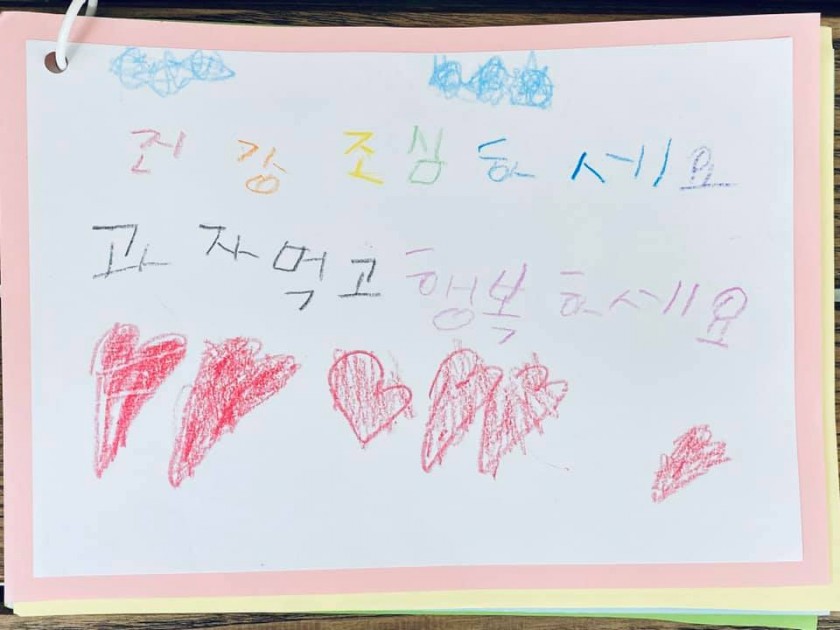 저강 조심하세요
과자먹고 행복하세요